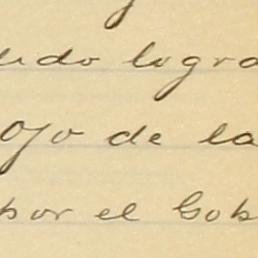 udo logra
oyo de la
por el Gob